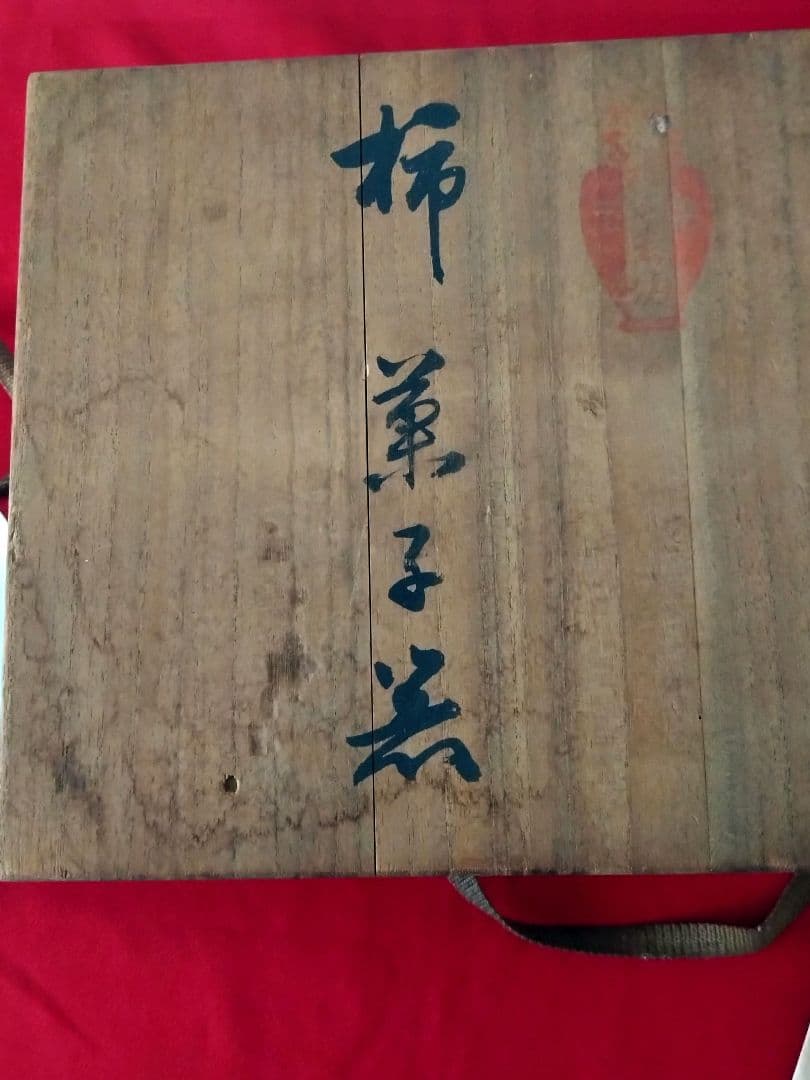 柿菓子器